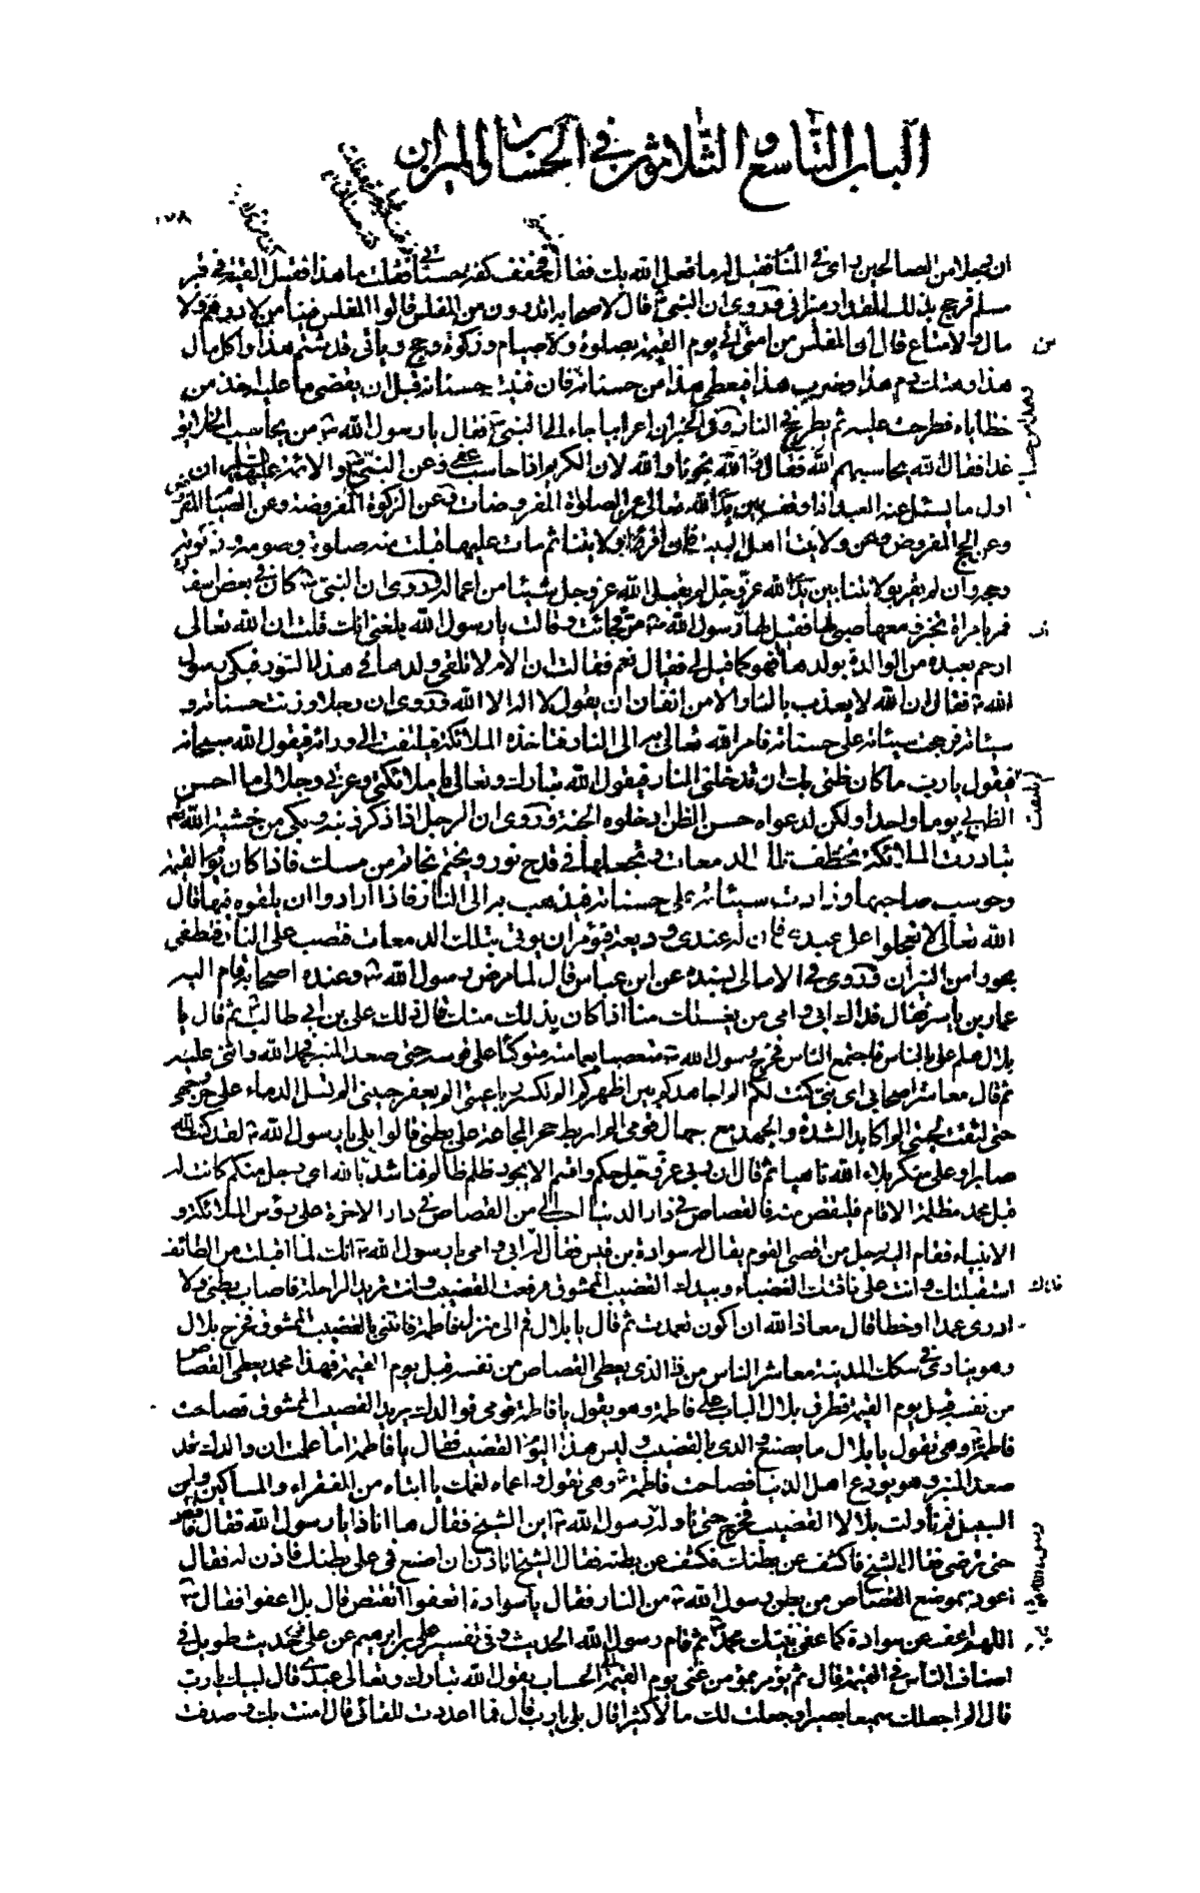 الباب التاسع و الثلاثون في الحساب و الميزان
١٧٨
ان رجلا من الصالحين رای في المنام فقيل له ما فعل الله بك فقال فخفف كفة حسناتي فقلت ما هذا فقيل القيته في قبر
مسلم فرجح بذلك المقدار ميزاني وروی ان النبي ص قال لاصحابه اتدرون من المفلس قالوا المفلس فينا من لا درهم ولا
مال له ولا متاع قال ان المفلس من امتي من اتي يوم القيمة بصلوة وصيام وزكوة وحج وياتي قد شتم هذا واكل مال
هذا وهتك دم هذا وضرب هذا فيعطي هذا من حسناته فان فنيت حسناته قبل ان يقضي ما عليه اخذ من
خطاياه فطرحت عليه ثم يطرح في النار وفي الخبر ان اعرابيا جاء الى النبي فقال يا رسول الله ص من يحاسب الخلايق
غدا فقال الله يحاسبهم الله فقال نجونا والله لان الكريم اذا حاسب عفى وعن النبي ص والائمة عليهم السلم ان
اول ما يسئل عنه العبد اذا وقف بين يدي الله تعالى عن الصلوة المفروضات وعن الزكوة المفروضة وعن الصيام المفروض
وعن الحج المفروض وعن ولايتنا اهل البيت فان اقر بولايتنا ثم مات عليها قبلت منه صلوته وصومه وزكوته
وحجه وان لم يقر بولايتنا بين يدي الله عز وجل لم يقبل الله عز وجل شيئا من اعماله وروی ان النبي ص كان في بعض اسفاره
فمر بامراة تخبز ومعها صبي لها فقيل لها رسول الله ص مر فجائت وقالت يا رسول الله بلغني انك قلت ان الله تعالى
ارحم بعبده من الوالدة بولدها فهو كما قيل لي فقال نعم فقالت ان الام لا تلقي ولدها في هذا التنور فبكى رسول
الله ص فقال ان الله لا يعذب بالنار الا من انف ان يقول لا اله الا الله وروی ان رجلا وزنت حسناته و
سيئاته فرجحت سيئاته على حسناته فامر الله تعالى به الى النار فتاخذه الملائكة فيلتفت الى ورائه فيقول الله سبحانه
فيقول يا رب ما كان ظني بك ان تدخلني النار فيقول الله تبارك وتعالى يا ملائكتي وعزتي وجلالي ما احسن
الظن بي يوما واحدا ولكن لدعواه حسن الظن ادخلوه الجنة وروی ان الرجل اذا ذكر ذنبه وبكى من خشية الله
تبادرت الملائكة فتختطف تلك الدمعات وتجعلها في قدح نور ويختم بخاتم من مسك فاذا كان يوم القيمة
وحوسب صاحبها وزادت سيئاته على حسناته فيذهب به الى النار فاذا ارادوا ان يلقوه فيها قال
الله تعالى لا تعجلوا على عبدي فان له عندي وديعة فيؤمر ان يوتى بتلك الدمعات فتصب على النار فتطفي
بحورا من النيران وروی في الامالي بسنده عن ابن عباس قال لما مرض رسول الله ص وعنده اصحابه قام اليه
عمار بن ياسر فقال فداك ابي وامي من يغسلك منا اذا كان ذلك منك قال ذلك علي بن ابي طالب ثم قال يا
بلال هلم علي بالناس فاجتمع الناس فخرج رسول الله ص متعصبا بعمامته متوكئا على قوسه حتى صعد المنبر فحمد الله واثنى عليه
ثم قال معاشر اصحابي اي نبي كنت لكم الم اجاهد بين اظهركم الم تكسر رباعيتي الم يعفر جبيني الم تسل الدماء على حر وجهي
حتى لثقت لحيتي الم اكابد الشدة والجهد مع جهال قومي الم اربط حجر المجاعة على بطني قالوا بلى يا رسول الله ص لقد كنت لله
صابرا وعن منكر بلاء الله ناهيا ثم قال ان ربي عز وجل حكم واقسم الا يجوزه ظلم ظالم فناشدتكم بالله اي رجل منكم كانت له
قبل محمد مظلمة الا قام فليقتص منه فالقصاص في دار الدنيا احب الي من القصاص في دار الاخرة على رؤس الملائكة و
الانبياء فقام اليه رجل من اقصى القوم يقال له سوادة بن قيس فقال له فداك ابي وامي يا رسول الله ص انك لما اقبلت من الطائف
استقبلتك وانت على ناقتك العضباء وبيدك القضيب الممشوق فرفعت القضيب وانت تريد الراحلة فاصاب بطني ولا
ادری عمدا او خطا قال معاذ الله ان اكون تعمدت ثم قال يا بلال قم الى منزل فاطمة فائتني بالقضيب الممشوق فخرج بلال
وهو ينادي في سكك المدينة معاشر الناس من ذا الذي يعطي القصاص من نفسه قبل يوم القيمة فهذا محمد يعطي القصاص
من نفسه قبل يوم القيمة فطرق بلال الباب على فاطمة وهو يقول يا فاطمة قومي فوالدك يريد القضيب الممشوق فصاحت
فاطمة وهي تقول يا بلال ما يصنع والدي بالقضيب وليس هذا اليوم القضيب فقال يا فاطمة اما علمت ان والدك قد
صعد المنبر وهو يودع اهل الدنيا فصاحت فاطمة وهي تقول واغماه لغمك يا ابتاه من للفقراء والمساكين وابن
السبيل ثم ناولت بلالا القضيب فخرج حتى ناوله رسول الله ص اين الشيخ فقال ها انا ذا يا رسول الله فقال فاقتص
حتى ترضى فقال الشيخ فاكشف عن بطنك فكشف عن بطنه فقال الشيخ اتاذن ان اضع في على بطنك فاذن له فقال
اعوذ بموضع القصاص من بطن رسول الله ص من النار فقال يا سوادة اتعفوا ام تقتص قال بل اعفو فقال ص
اللهم اعف عن سوادة كما عفى نبيك محمد ثم قام رسول الله الحديث وفي تفسير علي بن ابرهيم عن علي في حديث طويل في
اصناف الناس في القيمة قال ثم يؤمر بمؤمن غني يوم القيمة للحساب يقول الله تبارك وتعالى عبدي قال لبيك يا رب
قال الم اجعلك سميعا بصيرا وجعلت لك مالا كثيرا قال بلى يا رب قال فما اعددت للقائي قال امنت بك وصدقت